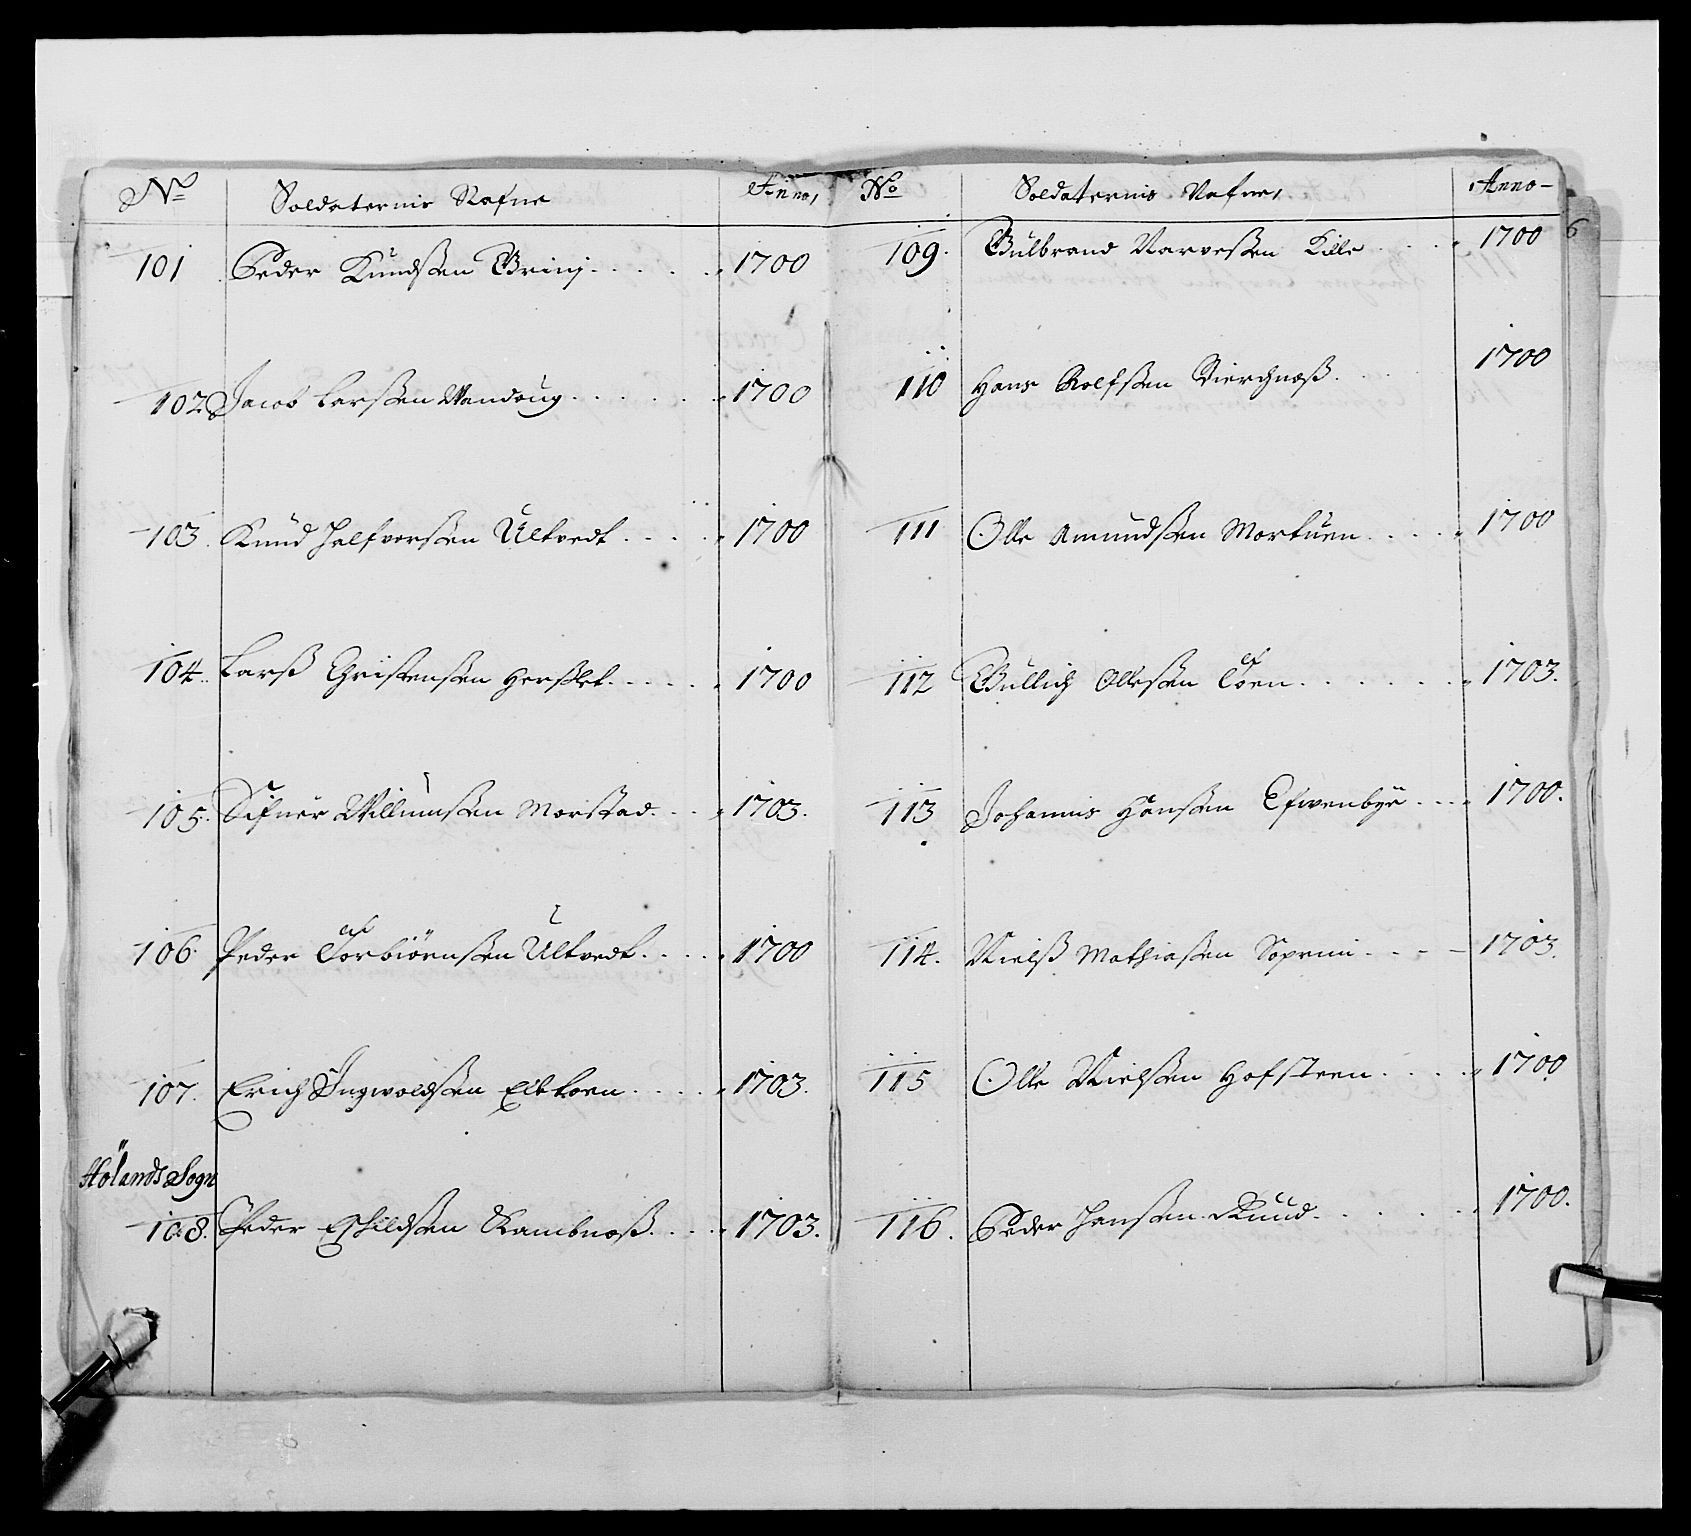 No Soldaternis Nafne Anno,
101 Peder Knudsen 1700
102 Jacob Larsen 1700
103. Knud Halfvorsen Ultvedt 1700
104. Larß Christensen Herslet 1700
105. Willumsen Morstad 1703.
106. Peder Torbiörnsen Ultvedt 1700
107. Erich Ingwoldsen 1703.
Hölands Sogn
108. Peder Eschildsen Kambnæß 1703.
No Soldaternis Nafne, Anno
6
109. Gulbrand Narvesen Kille 1700
110 Hans Rolfsen 1700
111 Olle Amundsen Mortuen 1700
112 Gullich Ollesen Toen 1703.
113 Johannis Hansen 1700.
114. Nielß Mathiasen 1703.
115 Olle Nielsen Hofsteen 1700
116. Peder Hansen Ruud 1700.